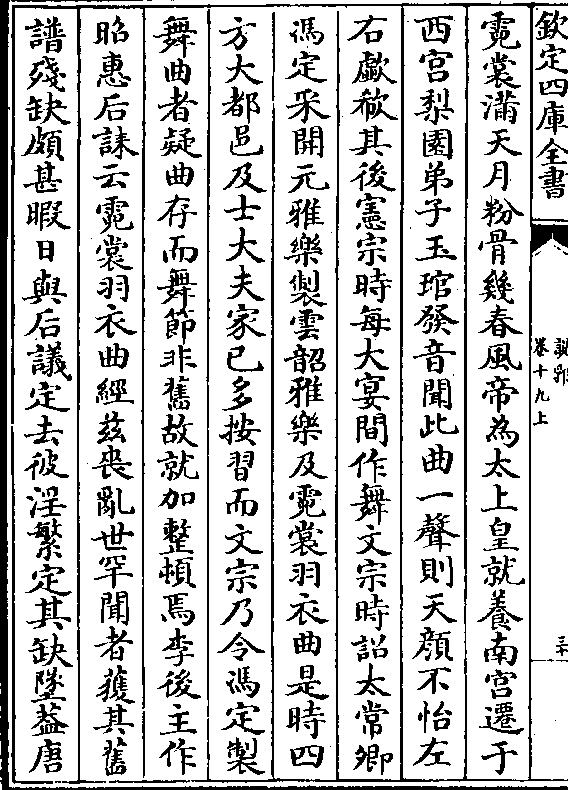 欽定四庫全書
說郛
卷十九上
霓裳滿天月粉骨幾春風帝為太上皇就養南宮遷于
西宮梨園弟子玉琯發音聞此曲一聲則天顔不怡左
右歔欷其後憲宗時每大宴間作舞文宗時詔太常卿
馮定采開元雅樂製雲韶雅樂及霓裳羽衣曲是時四
方大都邑及士大夫家已多按習而文宗乃令馮定製
舞曲者疑曲存而舞節非舊故就加整頓焉李後主作
昭惠后誄云霓裳羽衣曲經兹喪亂世罕聞者獲其舊
譜殘缺頗甚暇日與后議定去彼淫繁定其缺墜葢唐